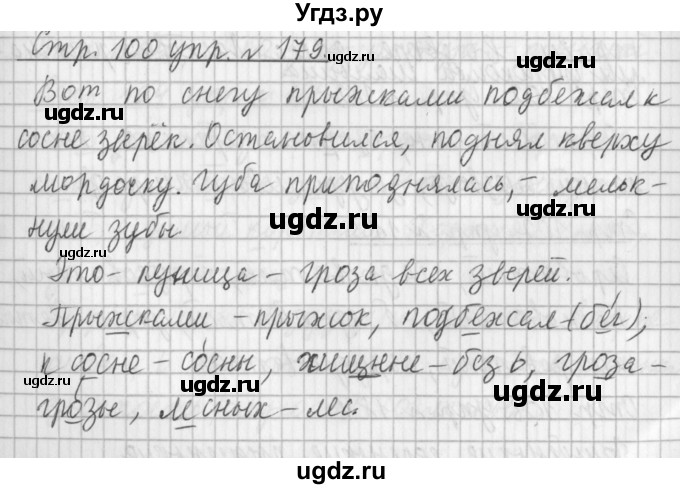 Угдз.ру
Стр. 100 упр. № 179.
Вот по снегу прыжками подбежал к
сосне зверёк. Остановился, поднял кверху
мордочку. Губа приподнялась, – мельк-
нули зубы
Это – куница – гроза всех зверей.
Прыжками – прыжок, подбежал (бег);
к сосне – сосны, хищные – без ь, гроза –
грозы, лесных – лес.
ugdz.ru
ugdz.ru
ugdz.ru
ugdz.ru
ugdz.ru
ugdz.ru
ugdz.ru
ugdz.ru
ugdz.ru
ugdz.ru
ugdz.ru